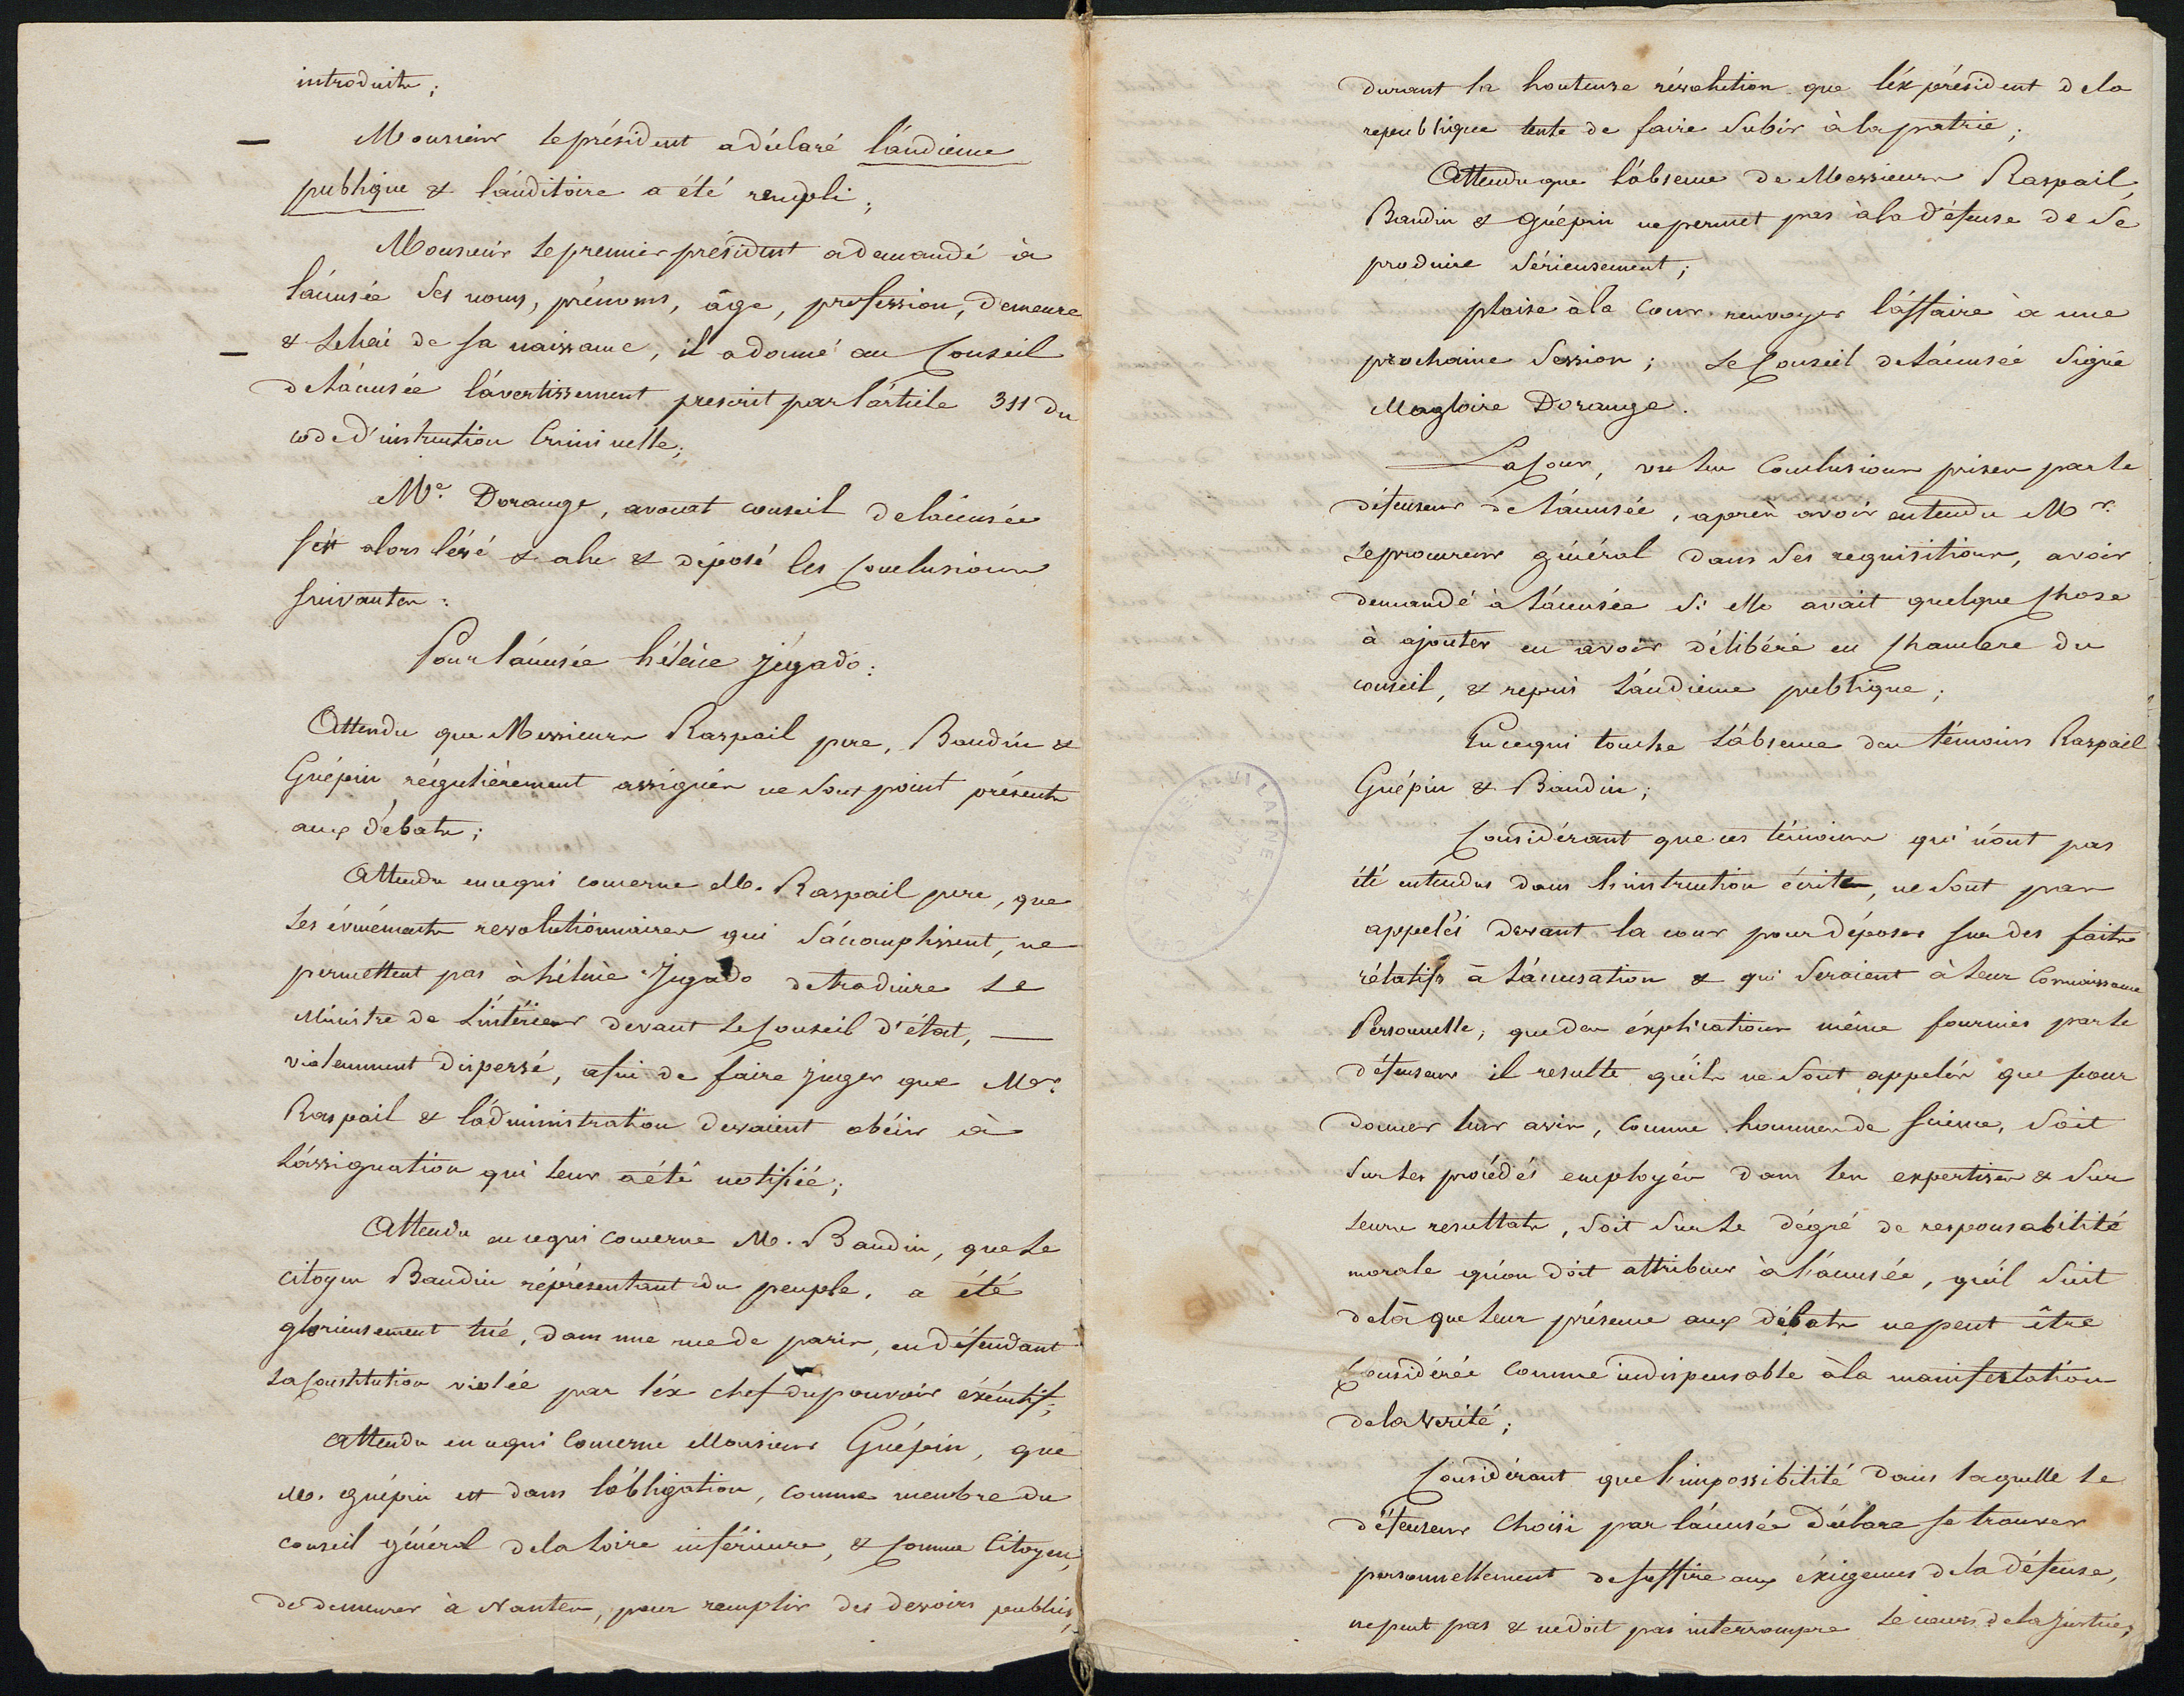 introduite;
Monsieur le président a déclaré l'audience
publique & l'auditoire a été rempli;
Monsieur le premier président a demandé à
l'accusée ses noms, prénoms, âge, profession, demeure
& le lieu de sa naissance, il a donné au Conseil
de l'accusée l'avertissement prescrit par l'article 311 du
code d'instruction Criminelle;
Me. Dorange, avocat conseil de l'accusée
s'est alors levé & a lu & déposé les Conclusions
suivantes:
Pour l'accusée héléne Jégado:
Attendu que Messieurs Raspail pere, Baudin &
Guépin régulièrement assignés ne sont point présents
aux débats;
Attendu en ce qui concerne M. Raspail pere, que
les événements revolutionnaires qui s'accomplissent, ne
permettent pas à héléne Jegado de traduire le
Ministre de l'intérieur devant le Conseil d'état, —
violemment dispersé, afin de faire juger que Mr.
Raspail & l'administration devaient obéir à
l'assignation qui leur a été notifiée;
Attendu en ce qui concerne M. Baudin, que le
citoyen Baudin réprésentant du peuple, a été
glorieusement tué, dans une rue de paris, en défendant
la Constitution violée par l'éx chef du pouvoir éxécutif;
Attendu en ce qui Concerne Monsieur Guépin, que
M. guépin est dans l'obligation, comme membre du
conseil général de la loire inférieure, & comme Citoyen,
de demeurer à Nantes, pour remplir des devoirs publics,
durant la honteuse révolution que l'éx président de la
republique tente de faire subir à la patrie;
Attendu que l'absence de Messieurs Raspail,
Baudin & Guépin ne permet pas à la défense de se
produire sérieusement;
plaise à la Cour renvoyer l'affaire à une
prochaine session; le Conseil de l'accusée signé
Magloire Dorange.
La Cour, vu les Conclusions prises par le
défenseur de l'accusée, après avoir entendu Mr.
le procureur général dans ses requisitions, avoir
demandé à l'accusée si elle avait quelque chose
à ajouter en avoir délibéré en chambre du
conseil, & repris l'audience publique;
En ce qui touche l'absence des témoins Raspail
Guépin & Baudin;
Considérant que ces témoins qui n'ont pas
été entendus dans l'instruction écrite, ne sont pas
appelés devant la cour pour déposer sur des faits
rélatifs à l'accusation & qui seraient à leur Connaissance
Personnelle, que des éxplications même fournies par le
défenseur il resulte qu'ils ne sont appelés que pour
donner leur avis, comme hommes de science, soit
sur les procédés employés dans les expertises & sur
leurs resultats, soit sur le dégré de responsabilité
morale qu'on doit attribuer à l'accusée, qu'il suit
de là que leur présence aux débats ne peut être
Considérée comme indispensable à la manifestation
de la vérité;
Considérant que l'impossibilité dans laquelle le
défenseur Choisi par l'accusée déclare se trouver
personnellement de suffire aux éxigences de la défense,
ne peut pas & ne doit pas interrompre le cours de la justice,